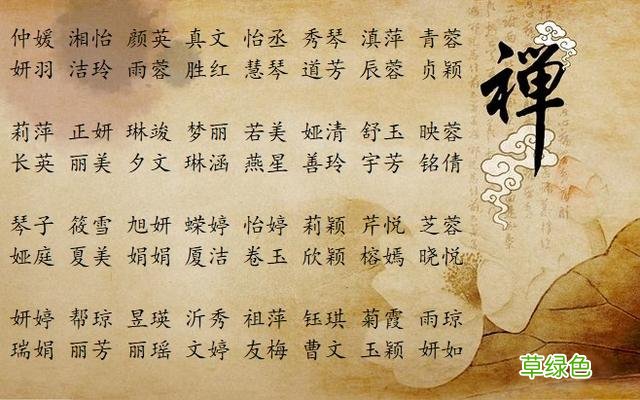 仲媛 湘怡 颜英 真文 怡丞 秀琴 滇萍 青蓉
妍羽 洁玲 雨蓉 胜红 慧琴 道芳 辰蓉 贞颖
莉萍 正妍 琳竣 梦丽 若美 娅清 舒玉 映蓉
长英 丽美 夕文 琳涵 燕星 善玲 宇芳 铭倩
琴子 筱雪 旭妍 嵘婷 怡婷 莉颖 芹悦 芝蓉
娅庭 夏美 娟娟 厦洁 卷玉 欣颖 榕嫣 晓悦
妍婷 帮琼 昱瑛 沂秀 祖萍 钰琪 菊霞 雨琼
瑞娟 丽芳 丽瑶 文婷 友梅 曹文 玉颖 妍如
禅
草绿色